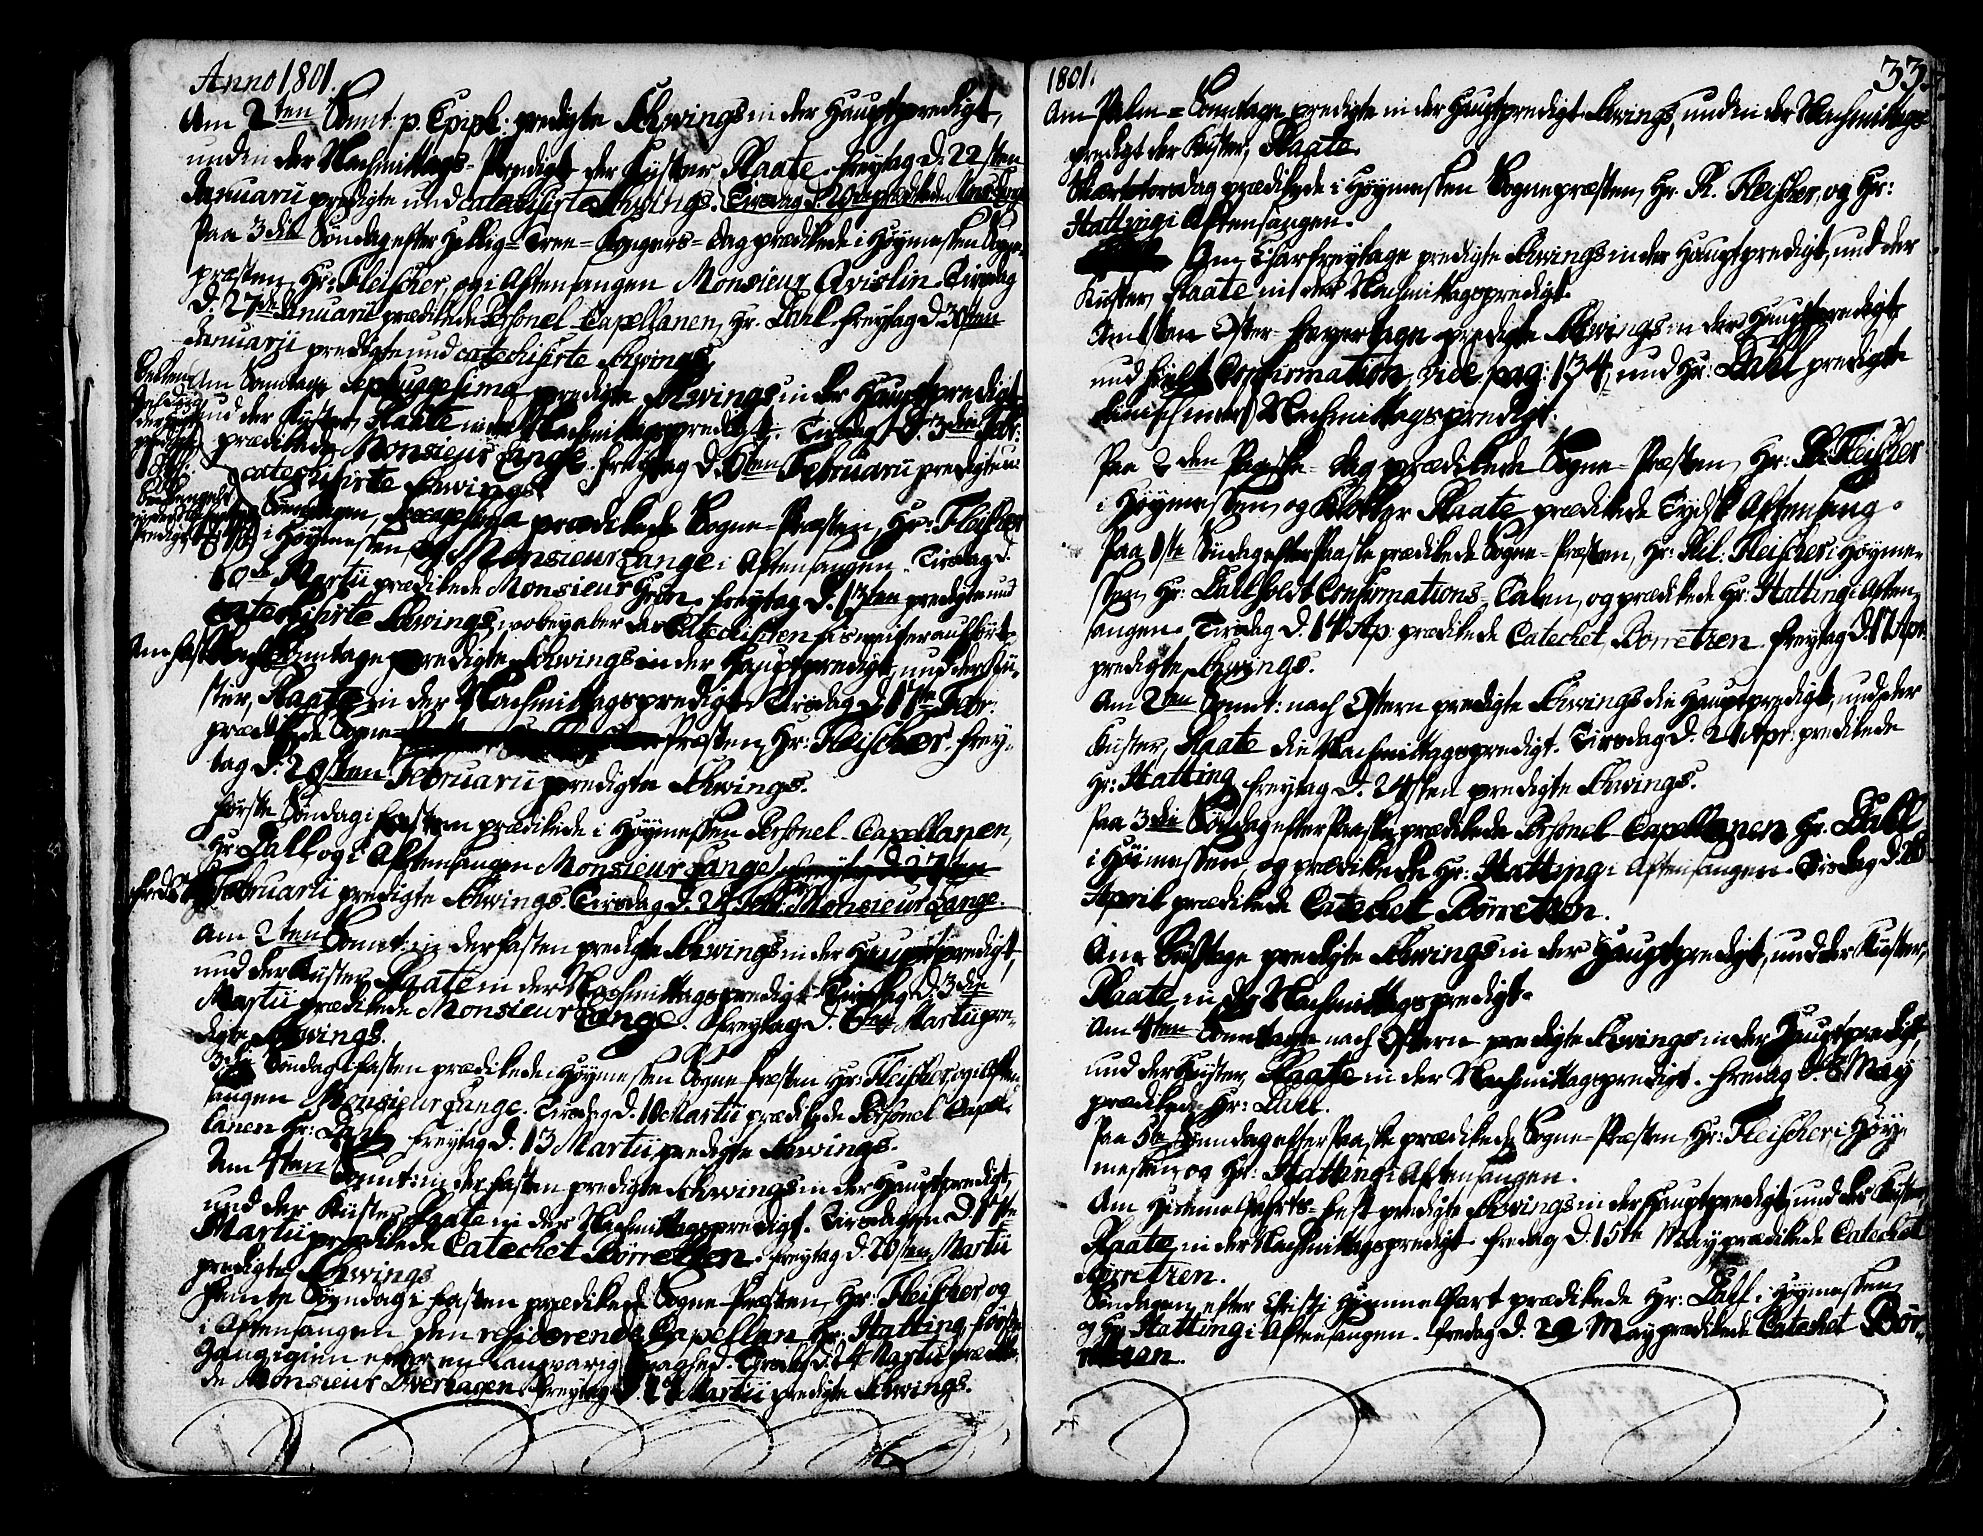 Anno 1801.
Am 2ten Sonnt: p. Epiph: predigte Ahwings in der Hauptpredigt,
und in der Nachmittags-Predigt der Kyster, Raate. Freytag d. 22sten
Januarii predigte und catechisirte Ahwings. Tirsdag d. 20 prædikede
Paa 3die Søndag efter Hellig-Tree-Kongers-Dag prædikede i Høymessen Sogne-
præsten, Hr: Fleischer, og i Aftensangen Monsieur Qvislin. Tirsdag
d. 27de Januarii prædikede Personel-Capellanen, Hr. Dahl. Freytag d. 30sten
Januarii predigte und catechisirte Ahwings.
Am Sonntage Septuagesima predigte Ahwings in der Hauptpredigt,
und der Küster, Raate in der Nachmittagspredigt. Tirsdag d. 3die Febr:
prædikede Monsieur Lange. Freytag d. 6ten Februarii predigte u:
catechisirte Ahwings.
Søndagen, Sexagesima prædikede Sogne-Præsten, Hr: Fleischer
i Høymessen, og Monsieur Lange i Aftensangen. Tirsdag d.
10de Martii prædikede Monsieur Freytag d. 13ten predigte und
catechisirte Ahwings, wobey aber das Catechisiren
Am Fastnachts Sonntage predigte Ahwings in der Hauptpredigt, und der Kü-
ster, Raate in der Nachmittagspredigt. Tirsdag d. 17de Febr:
prædikede Sogne-Præsten, Hr: Fleischer. Frey-
tag d. 20sten Februarii predigte Ahwings.
Første Søndag i Fasten prædikede i Høymessen Personel-Capellanen,
Hr. Dahl, og i Aftensangen Monsieur Lange. Freytag d. 27sten
Februarii predigte Ahwings. Tirsdag d. 24 Febr: Monsieur Lange.
Am 2ten Sonnt: in der Fasten predigte Ahwings in der Hauptpredigt,
und der Küster, Raate in der Nachmittagspredigt. Tirsdag d. 3die
Martii prædikede Monsieur Lange. Freytag d. 6ten Martii pre-
digte Ahwings.
3die Søndag i Fasten prædikede i Høymessen Sogne-Præsten Hr: Fleischer, og i Aften-
sangen Monsieur Lange. Tirsdag d. 10 Martii prædikede Personel Capel-
lanen Hr: Dahl. Freytag d. 13 Martii predigte Ahwings.
Am 4ten Sonnt: in der Fasten predigte Ahwings in der Hauptpredigt,
und der Küster, Raate in der Nachmittagspredigt. Tirsdagen d. 17de
Martii prædikede Catechet Børretzen. Freytag d. 20sten Martii
predigte Ahwings.
Femte Søndag i Fasten prædikede Sogne-Præsten, Hr: Fleischer, og
i Aftensangen den residerende Capellan, Hr: Hatting, første
Gang igien efter en langvarig Svaghed. Tirsdag d. 24 Martii prædike-
de Monsieur Overtagen. Freytag d. 27 Martii predigte Ahwings.
1801.
33
Am Palm-Sonntage predigte in der Hauptpredigt Ahwings, und in der Nachmittags-
predigt der Küster, Raate.
Skærtorsdag prædikede i Høymessen Sognepræsten, Hr. R. Fleischer, og Hr:
Hatting i Aftensangen.
Am Charfreytage predigte Ahwings in der Hauptpredigt, und der
Küster, Raate in der Nachmittagspredigt.
Am 1sten Oster-Feyertage predigte Ahwings in der Hauptpredigt
und hielt Confirmation, vide pag: 134, und Hr: Dahl predigte
Nachmittagspredigt.
Paa 2den Paaske-Dag prædikede Sogne-Præsten, Hr: R. Fleischer
i Høymessen, og Klokker Raate prædikede Tydsk Aftensang.
Paa 1ste Søndag efter Paaske prædikede Sogne-Præsten, Hr: Fleischer i Høyme-
ssen, Hr: Dahl holdt Confirmations-Talen, og prædikede Hr: Hatting i Aften-
sangen. Tirsdag d. 14 Ap: prædikede Catechet, Børretzen. Freytag d. 17 Apr:
predigte Ahwings.
Am 2ten Sonnt: nach Ostern predigte Ahwings die Hauptpredigt, und der
Küster, Raate die Nachmittagspredigt. Tirsdag d. 21 Apr: prædikede
Hr: Hatting. Freytag d. 24sten predigte Ahwings.
Paa 3die Søndag efter Paaske prædikede Personel-Capellanen Hr: Dahl
i Høimessen, og prædikede Hr: Hatting i Aftensangen. Tirsdag d. 28
April prædikede Catechet Børretzen.
Am Bustage predigte Ahwings in der Hauptpredigt, und der Küster,
Raate, in der Nachmittagspredigt.
Am 4ten Sonntage nach Ostern predigte Ahwings in der Hauptpredigt,
und der Küster, Raate in der Nachmittagspredigt. Fredag d. 8 May
prædikede Hr: Dahl.
Paa 5te Søndag efter Paaske prædikede Sogne-Præsten, Hr: Fleischer i Høy-
messen, og Hr: Hatting i Aftensangen.
Am Himmelfahrts-Fest predigte Ahwings in der Hauptpredigt, und der Küster,
Raate, in der Nachmittagspredigt. Fredag d. 15te May prædikede Catechet
Børretzen.
Søndagen efter Christi Himmelfart prædikede Hr: Dahl i Høymessen,
og Hr. Hatting i Aftensangen. Fredag d. 22 May prædikede Catechet Bør-
retzen.